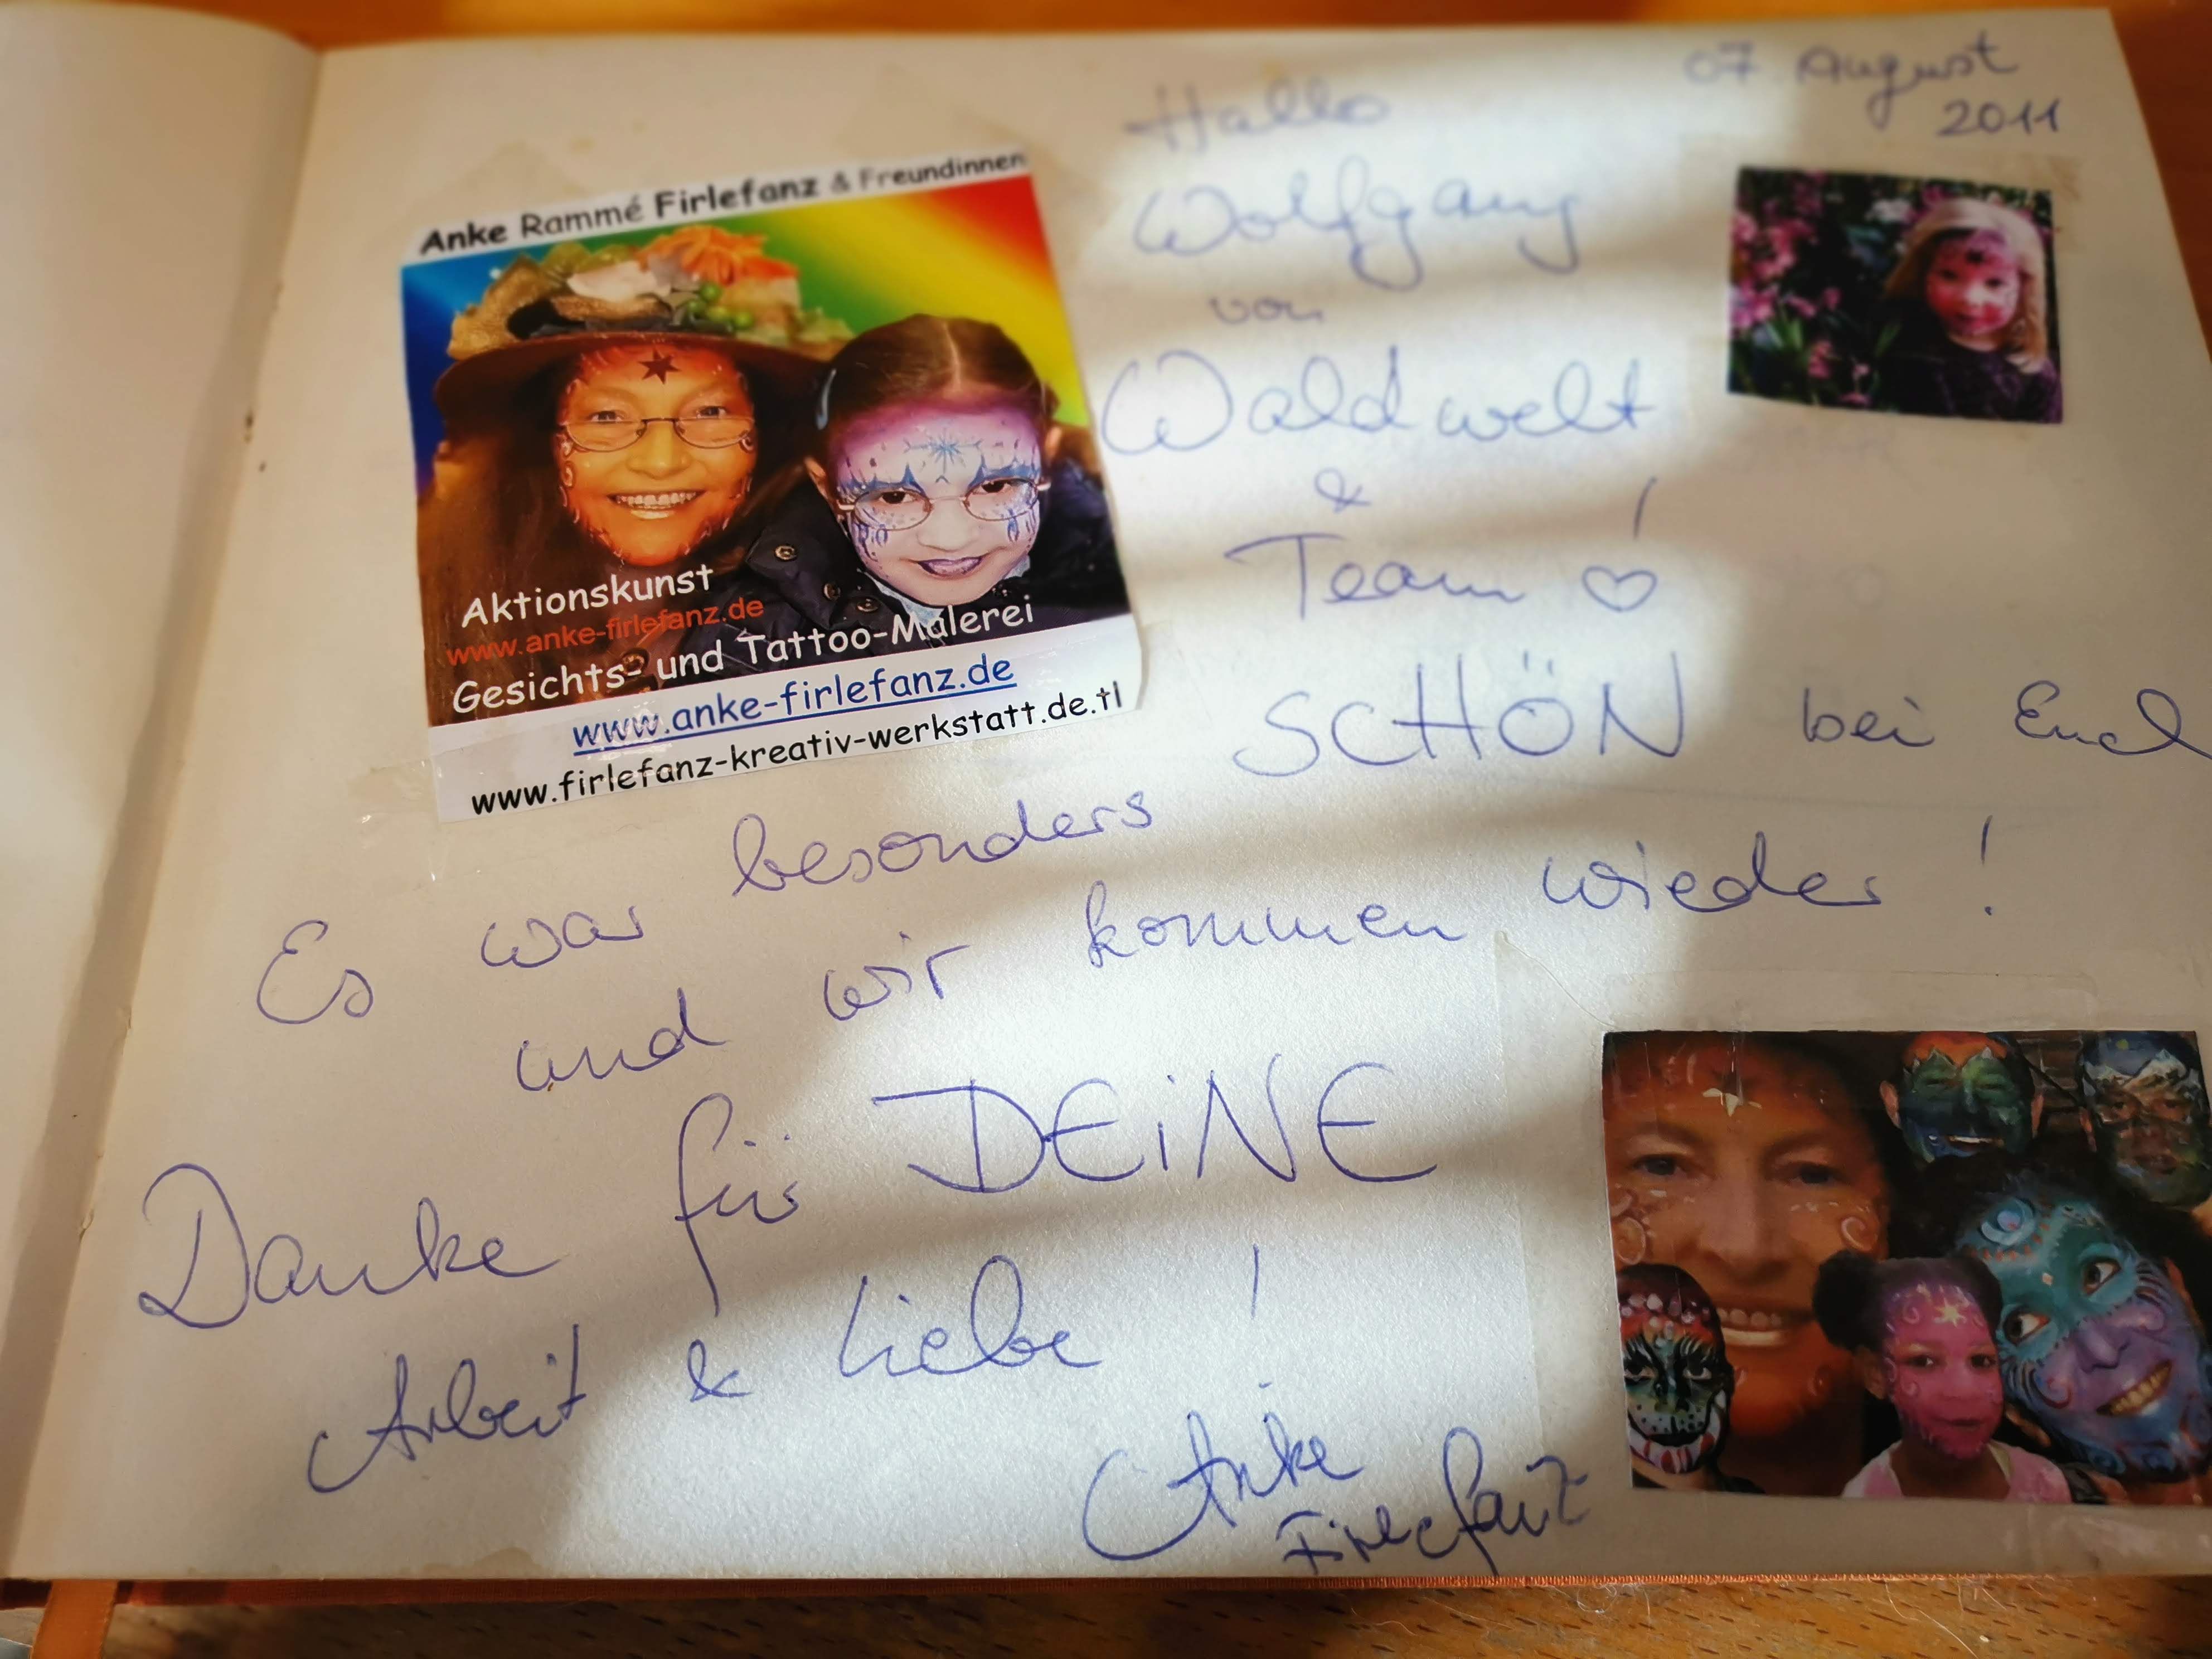 07 August
2011
Hallo
Wolfgang
von
Waldwelt
&
Team !
Anke Rammé Firlefanz & Freundinnen
Aktionskunst
www.anke-firlefanz.de
Gesichts- und Tattoo-Malerei
www.anke-firlefanz.de
www.firlefanz-kreativ-werkstatt.de.tl
Es war besonders SCHÖN bei Euch
und wir kommen wieder !
Danke für DEiNE
Arbeit & Liebe !
Anke
Firlefanz